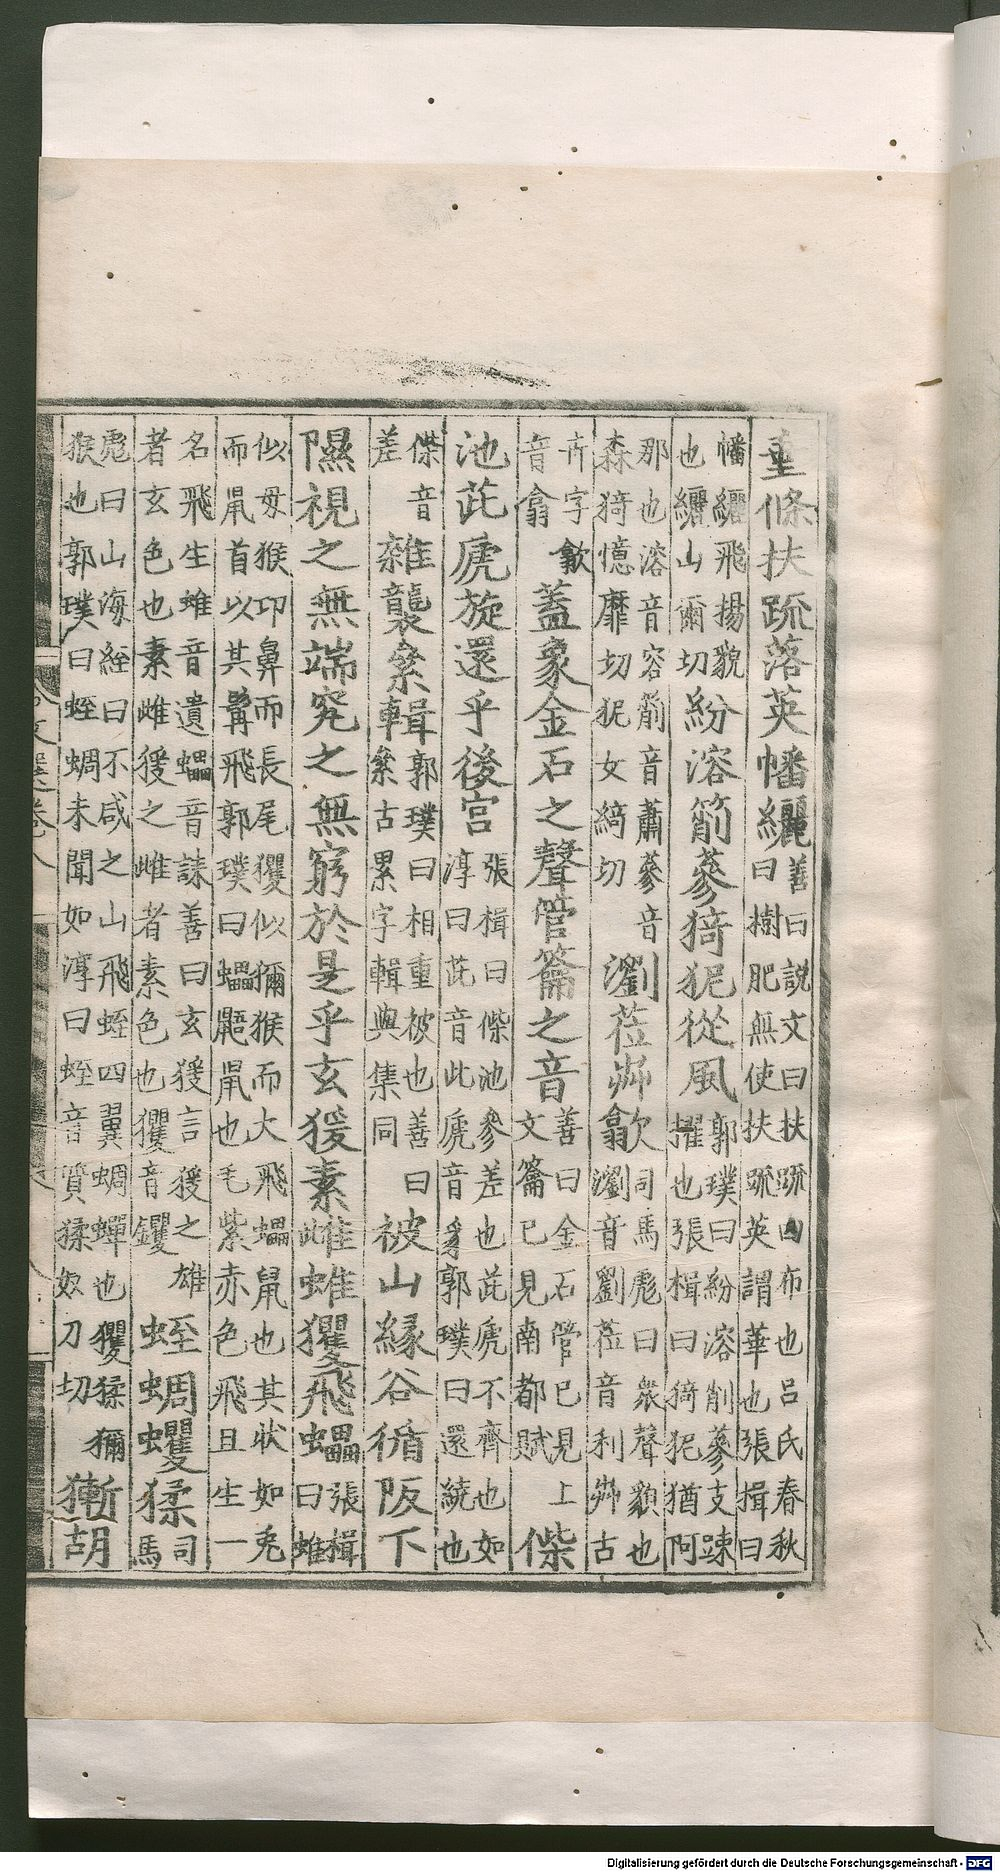 垂條扶疏落英幡纚善曰說文曰扶疏四布也呂氏春秋
曰樹肥無使扶疏英謂華也張揖曰
幡纚飛揚貌
也纚山爾切紛溶箾蔘猗狔從風郭璞曰紛溶削蔘支竦
擢也張楫曰猗狔猶阿
那也溶音容箾音蕭蔘音
森猗憶靡切狔女綺切瀏莅芔歙司馬彪曰衆聲貌也
瀏音劉莅音利芔古
卉字歙
音翕蓋象金石之聲管籥之音善曰金石管已見上
文籥已見南都賦傑
池茈虒旋還乎後宮張楫曰傑池參差也茈虒不齊也如
淳曰茈音此虒音豸郭璞曰還繞也
傑音
差雜襲絫輯郭璞曰相重被也善曰
絫古累字輯與集同被山緣谷循阪下
隰視之無端究之無窮於是乎玄猨素雌蜼玃飛蠝張楫
曰蜼
似母猴卬鼻而長尾玃似獼猴而大飛蠝鼠也其狀如兎
而鼠首以其髯飛郭璞曰蠝鼯鼠也毛紫赤色飛且生一
名飛生蜼音遺蠝音誄善曰玄猨言猨之雄
者玄色也素雌猨之雌者素色也玃音钁蛭蜩蠼猱司
馬
彪曰山海經曰不咸之山飛蛭四翼蜩蟬也玃猱獼
猴也郭璞曰蛭蜩未聞如淳曰蛭音質猱奴刀切獑胡
文選卷八
Digitalisierung gefördert durch die Deutsche Forschungsgemeinschaft - DFG